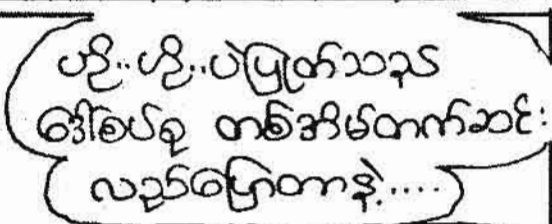 ဟို..ဟို..ပဲပြုတ်သည်
ဒေါ်စပ်စု တစ်အိမ်တက်ဆင်း
လည်ပြောတာနဲ့....